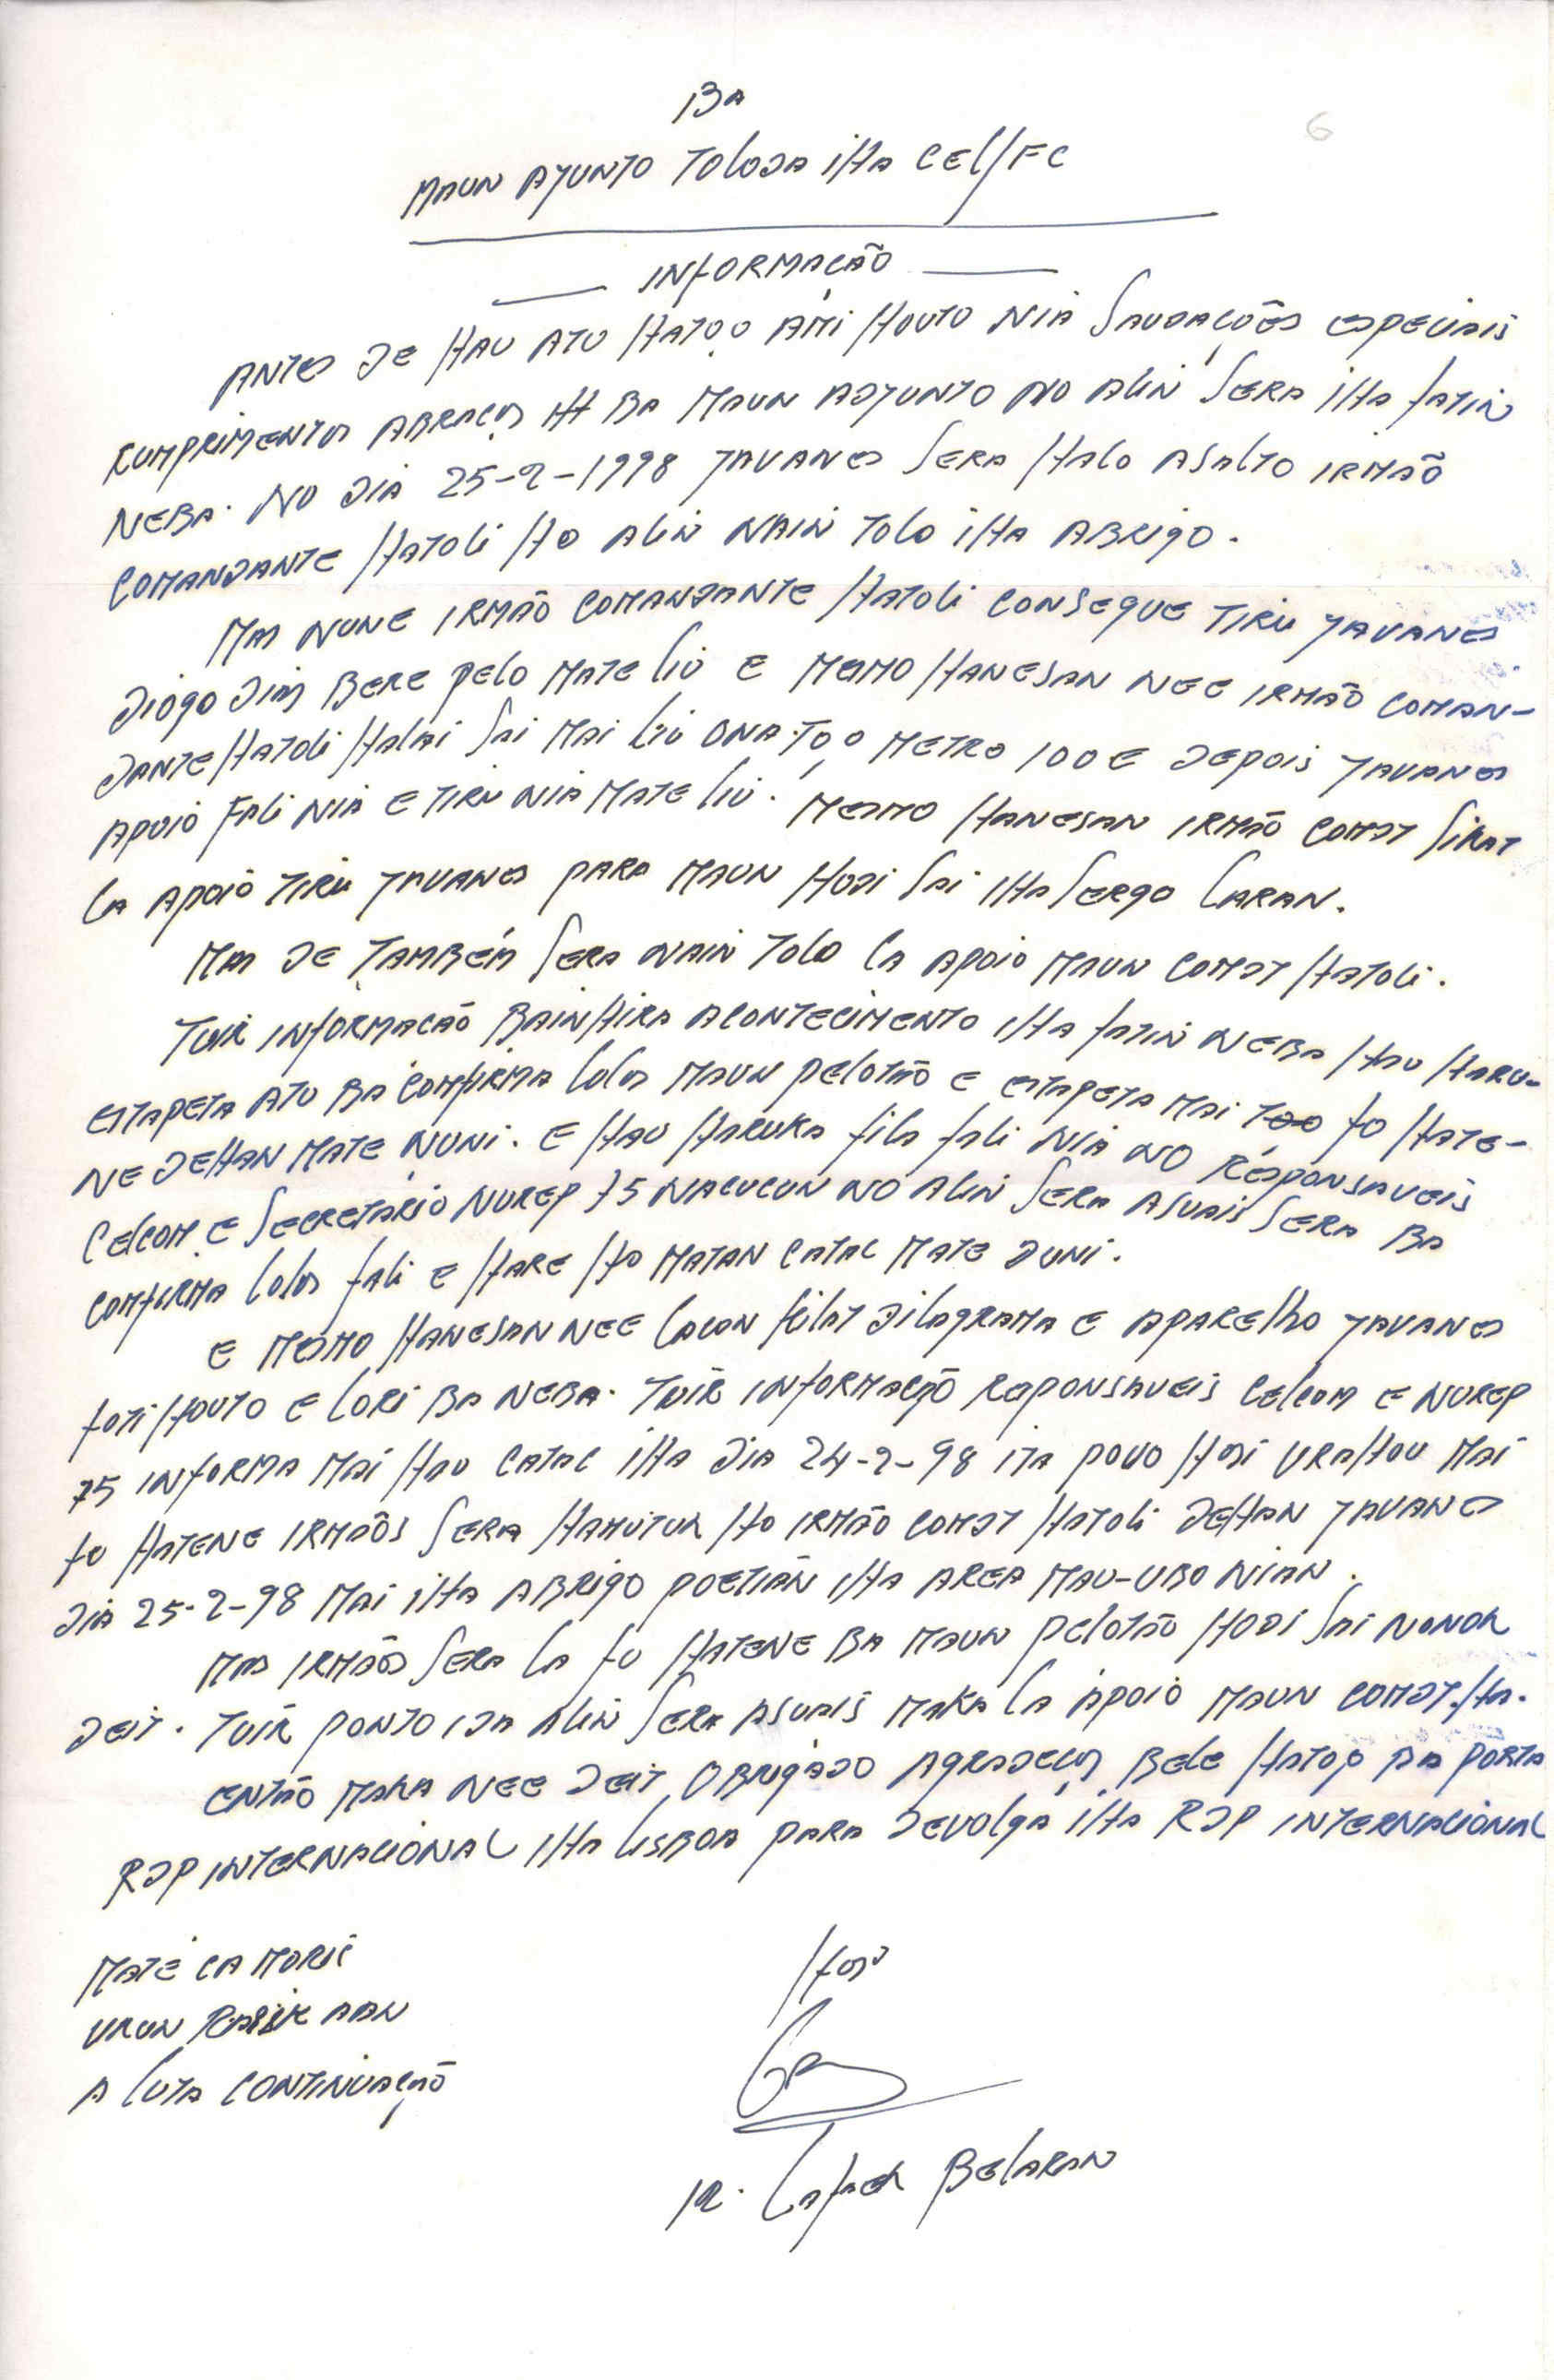 BA
MAUN AJUNTO TOLODA IHA CEL/FC
INFORMAÇÃO
6
ANTES DE HAU ATU HATOO AMI HOUTO NIA SAUDAÇÕES ESPECIAIS
CUMPRIMENTOS ABRAÇOS HH BA MAUN ADJUNTO NO ALIN SERA IHA FATIN
NEBA. NO DIA 25-2-1998 JAVANES SERA HALO ASALTO IRMÃO
COMANDANTE HATOLI HO ALIN NAIN TOLO IHA ABRIGO.
MAS NUNE IRMÃO COMANDANTE HATOLI CONSEGUE TIRU JAVANES
DIOGO DIAS BERE PELO MATE LIU E MESMO HANESAN NEE IRMÃO COMAN-
DANTE HATOLI HALAI SAI MAI LIU ONA TOO METRO 100 E DEPOIS JAVANES
APOIO FALI NIA E TIRU NIA MATE LIU. MESMO HANESAN IRMÃO COMDT SIRAT
LA APOIO TIRU JAVANES PARA MAUN HODI SAI IHA SERGO LARAN.
MAS DE TAMBÉM SERA NAIN TOLO LA APOIO MAUN COMDT HATOLI.
TUIR INFORMAÇÃO BAINHIRA ACONTECIMENTO IHA FATIN NEBA HAU HARU-
ESTAPETA ATU BA COMFIRMA LOLOS MAUN PELOTÃO E ESTAPETA MAI TOO FO HATE-
NE DEHAN MATE NUNI. E HAU HARUKA FILA FALI NIA NO RESPONSAVEIS
CELCOM E SECRETARIO NUREP 75 NACUCUN NO ALIN SERA ASUAIS SERA BA
COMFIRMA LOLOS FALI E HARE HO MATAN CATAC MATE DUNI.
E MESMO HANESAN NEE LACON KILAT DILAGRAMA E APARELHO JAVANES
FOTI HOUTO E LORI BA NEBA. TUIR INFORMAÇÃO RESPONSAVEIS CELCOM E NUREP
75 INFORMA MAI HAU CATAC IHA DIA 24-2-98 ITA POVO HOSI URAHOU MAI
FO HATENE IRMÃOS SERA HAMUTUK HO IRMÃO COMDT HATOLI DEHAN JAVANES
DIA 25-2-98 MAI IHA ABRIGO POETIAN IHA AREA MAU-UBO NIAN.
MAS IRMÃOS SERA LA FO HATENE BA MAUN PELOTÃO HODI SAI NONOK
DEIT. TUIR PONTO IDA ALIN SERA ASUAIS MAKA LA APOIO MAUN COMDT. HA.
ENTÃO MAKA NEE DEIT, OBRIGADO AGRADEÇOS BELE HATOO BA PORTA
RDP INTERNACIONAL IHA LISBOA PARA DEVOLGA IHA RDP INTERNACIONAL
MATE CA MORIS
UKUN RASIK AAN
A LUTA CONTINUAÇÃO
HOSI
LAFAEK BELARAN